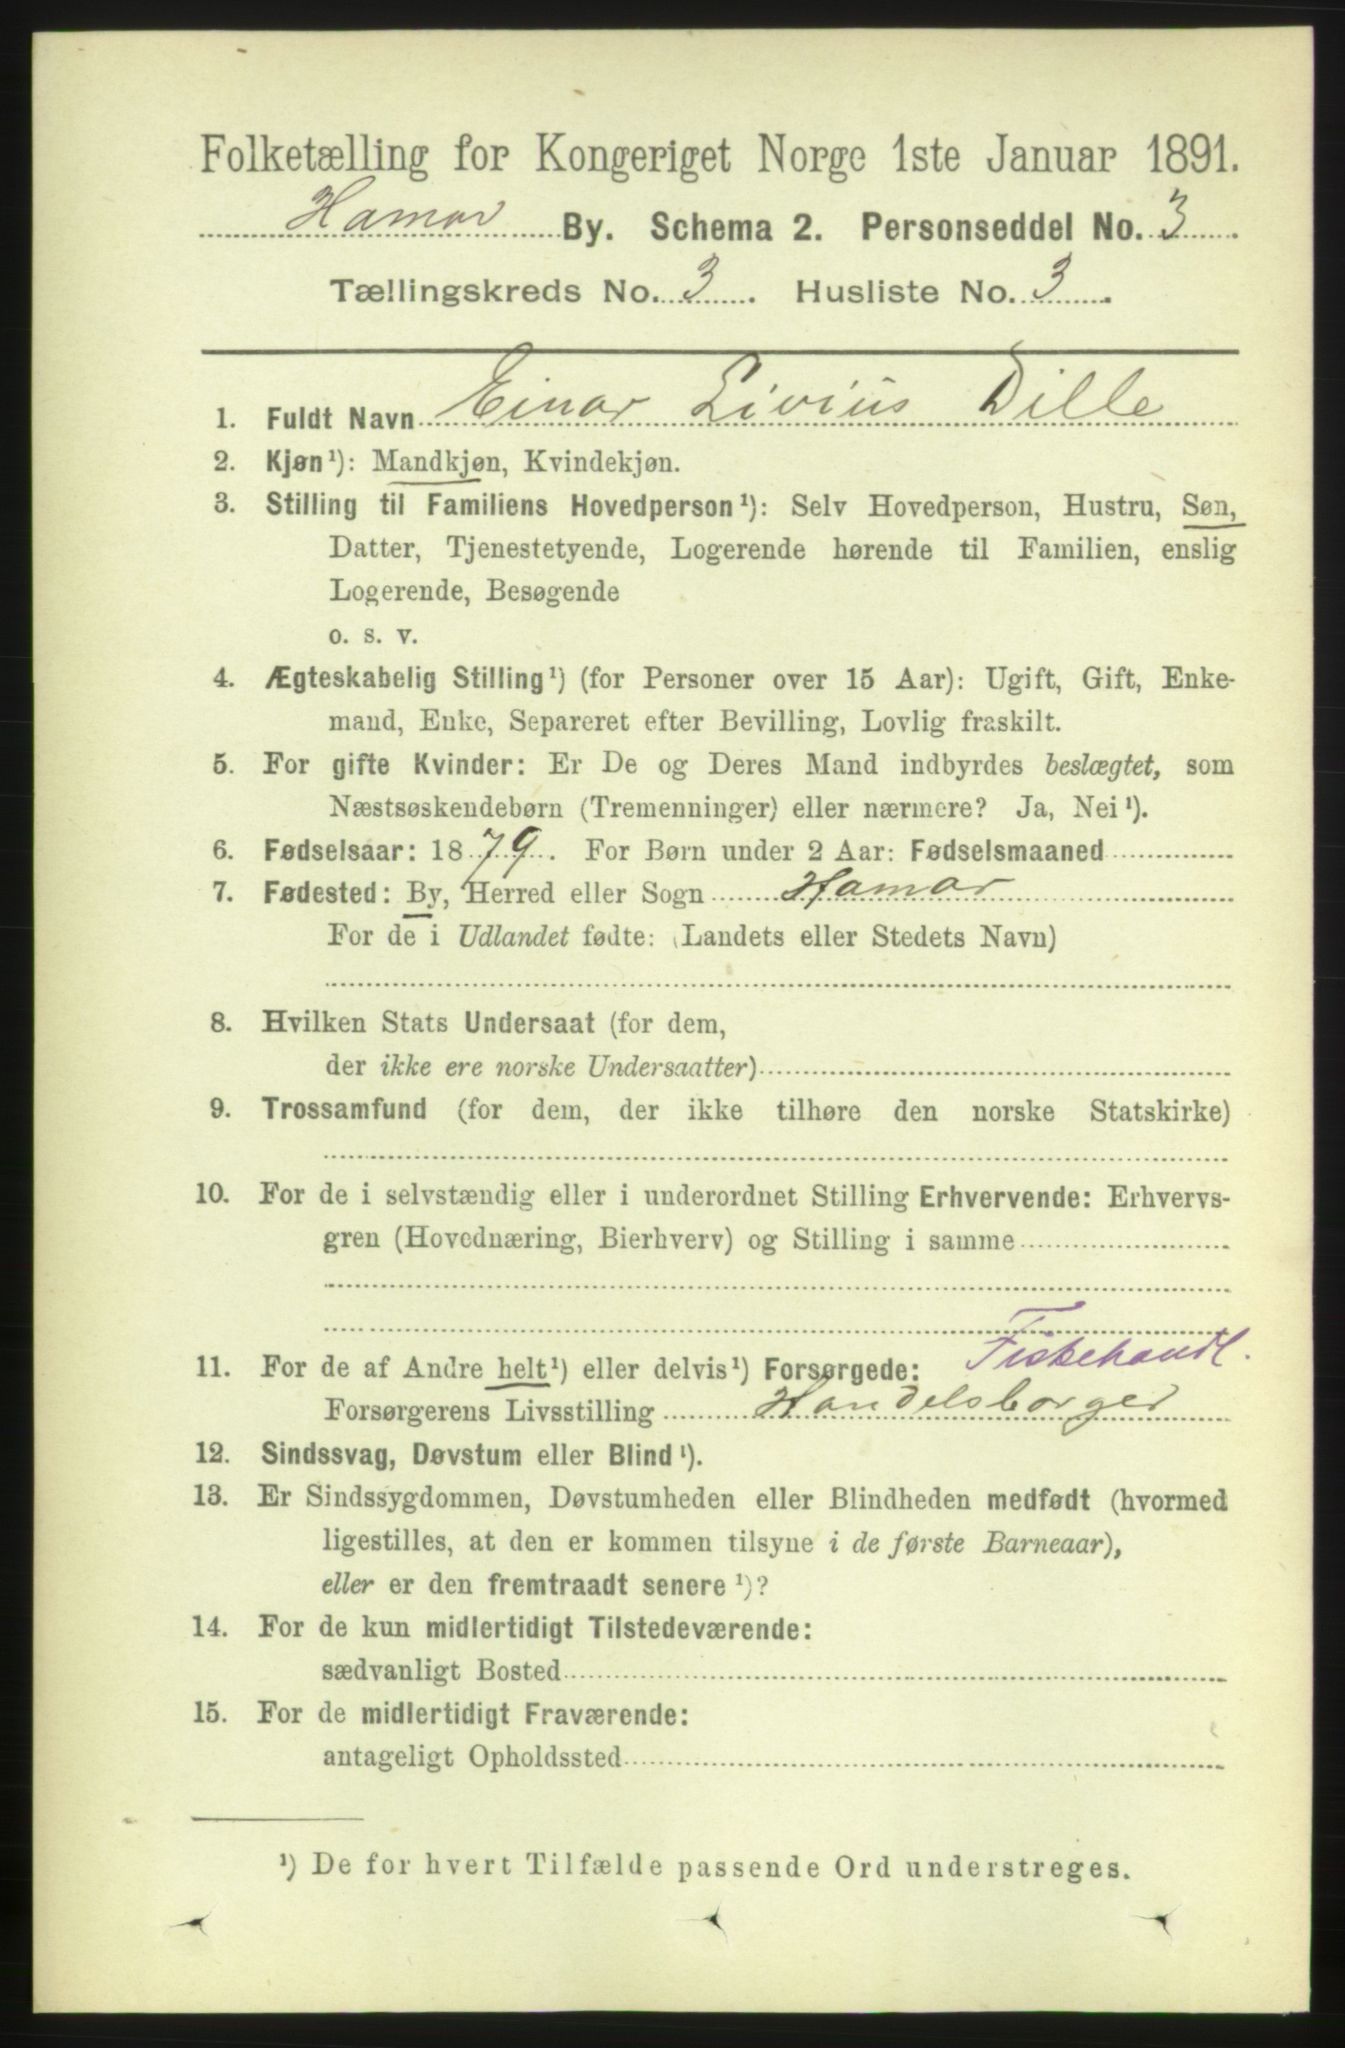 Folketælling for Kongeriget Norge 1ste Januar 1891.
Hamar By. Schema 2. Personseddel No. 3
Tællingskreds No. 3. Husliste No. 3.
1. Fuldt Navn Einar Livius Dille
2. Kjøn¹): Mandkjøn, Kvindekjøn.
3. Stilling til Familiens Hovedperson¹): Selv Hovedperson, Hustru, Søn,
Datter, Tjenestetyende, Logerende hørende til Familien, enslig
Logerende, Besøgende
o. s. v.
4. Ægteskabelig Stilling¹) (for Personer over 15 Aar): Ugift, Gift, Enke-
mand, Enke, Separeret efter Bevilling, Lovlig fraskilt.
5. For gifte Kvinder: Er De og Deres Mand indbyrdes beslægtet, som
Næstsøskendebørn (Tremenninger) eller nærmere? Ja, Nei¹).
6. Fødselsaar: 1879. For Børn under 2 Aar: Fødselsmaaned
7. Fødested: By, Herred eller Sogn Hamar
For de i Udlandet fødte: (Landets eller Stedets Navn)
8. Hvilken Stats Undersaat (for dem,
der ikke ere norske Undersaatter)
9. Trossamfund (for dem, der ikke tilhøre den norske Statskirke)
10. For de i selvstændig eller i underordnet Stilling Erhvervende: Erhvervs-
gren (Hovednæring, Bierhverv) og Stilling i samme
11. For de af Andre helt¹) eller delvis¹) Forsørgede: Fiskehandl.
Forsørgerens Livsstilling Handelsborger
12. Sindssvag, Døvstum eller Blind¹).
13. Er Sindssygdommen, Døvstumheden eller Blindheden medfødt (hvormed
ligestilles, at den er kommen tilsyne i de første Barneaar),
eller er den fremtraadt senere¹)?
14. For de kun midlertidigt Tilstedeværende:
sædvanligt Bosted
15. For de midlertidigt Fraværende:
antageligt Opholdssted
¹) De for hvert Tilfælde passende Ord understreges.